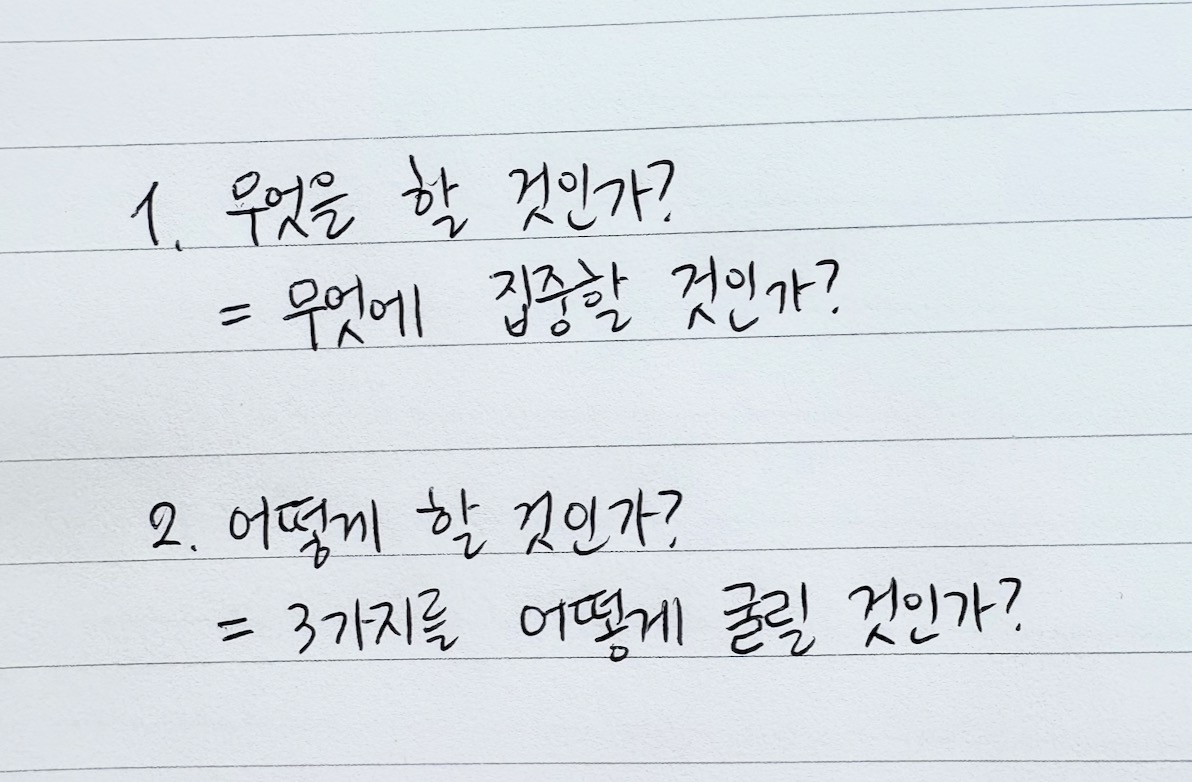 1. 무엇을 할 것인가?
= 무엇에 집중할 것인가?
2. 어떻게 할 것인가?
= 3가지를 어떻게 굴릴 것인가?